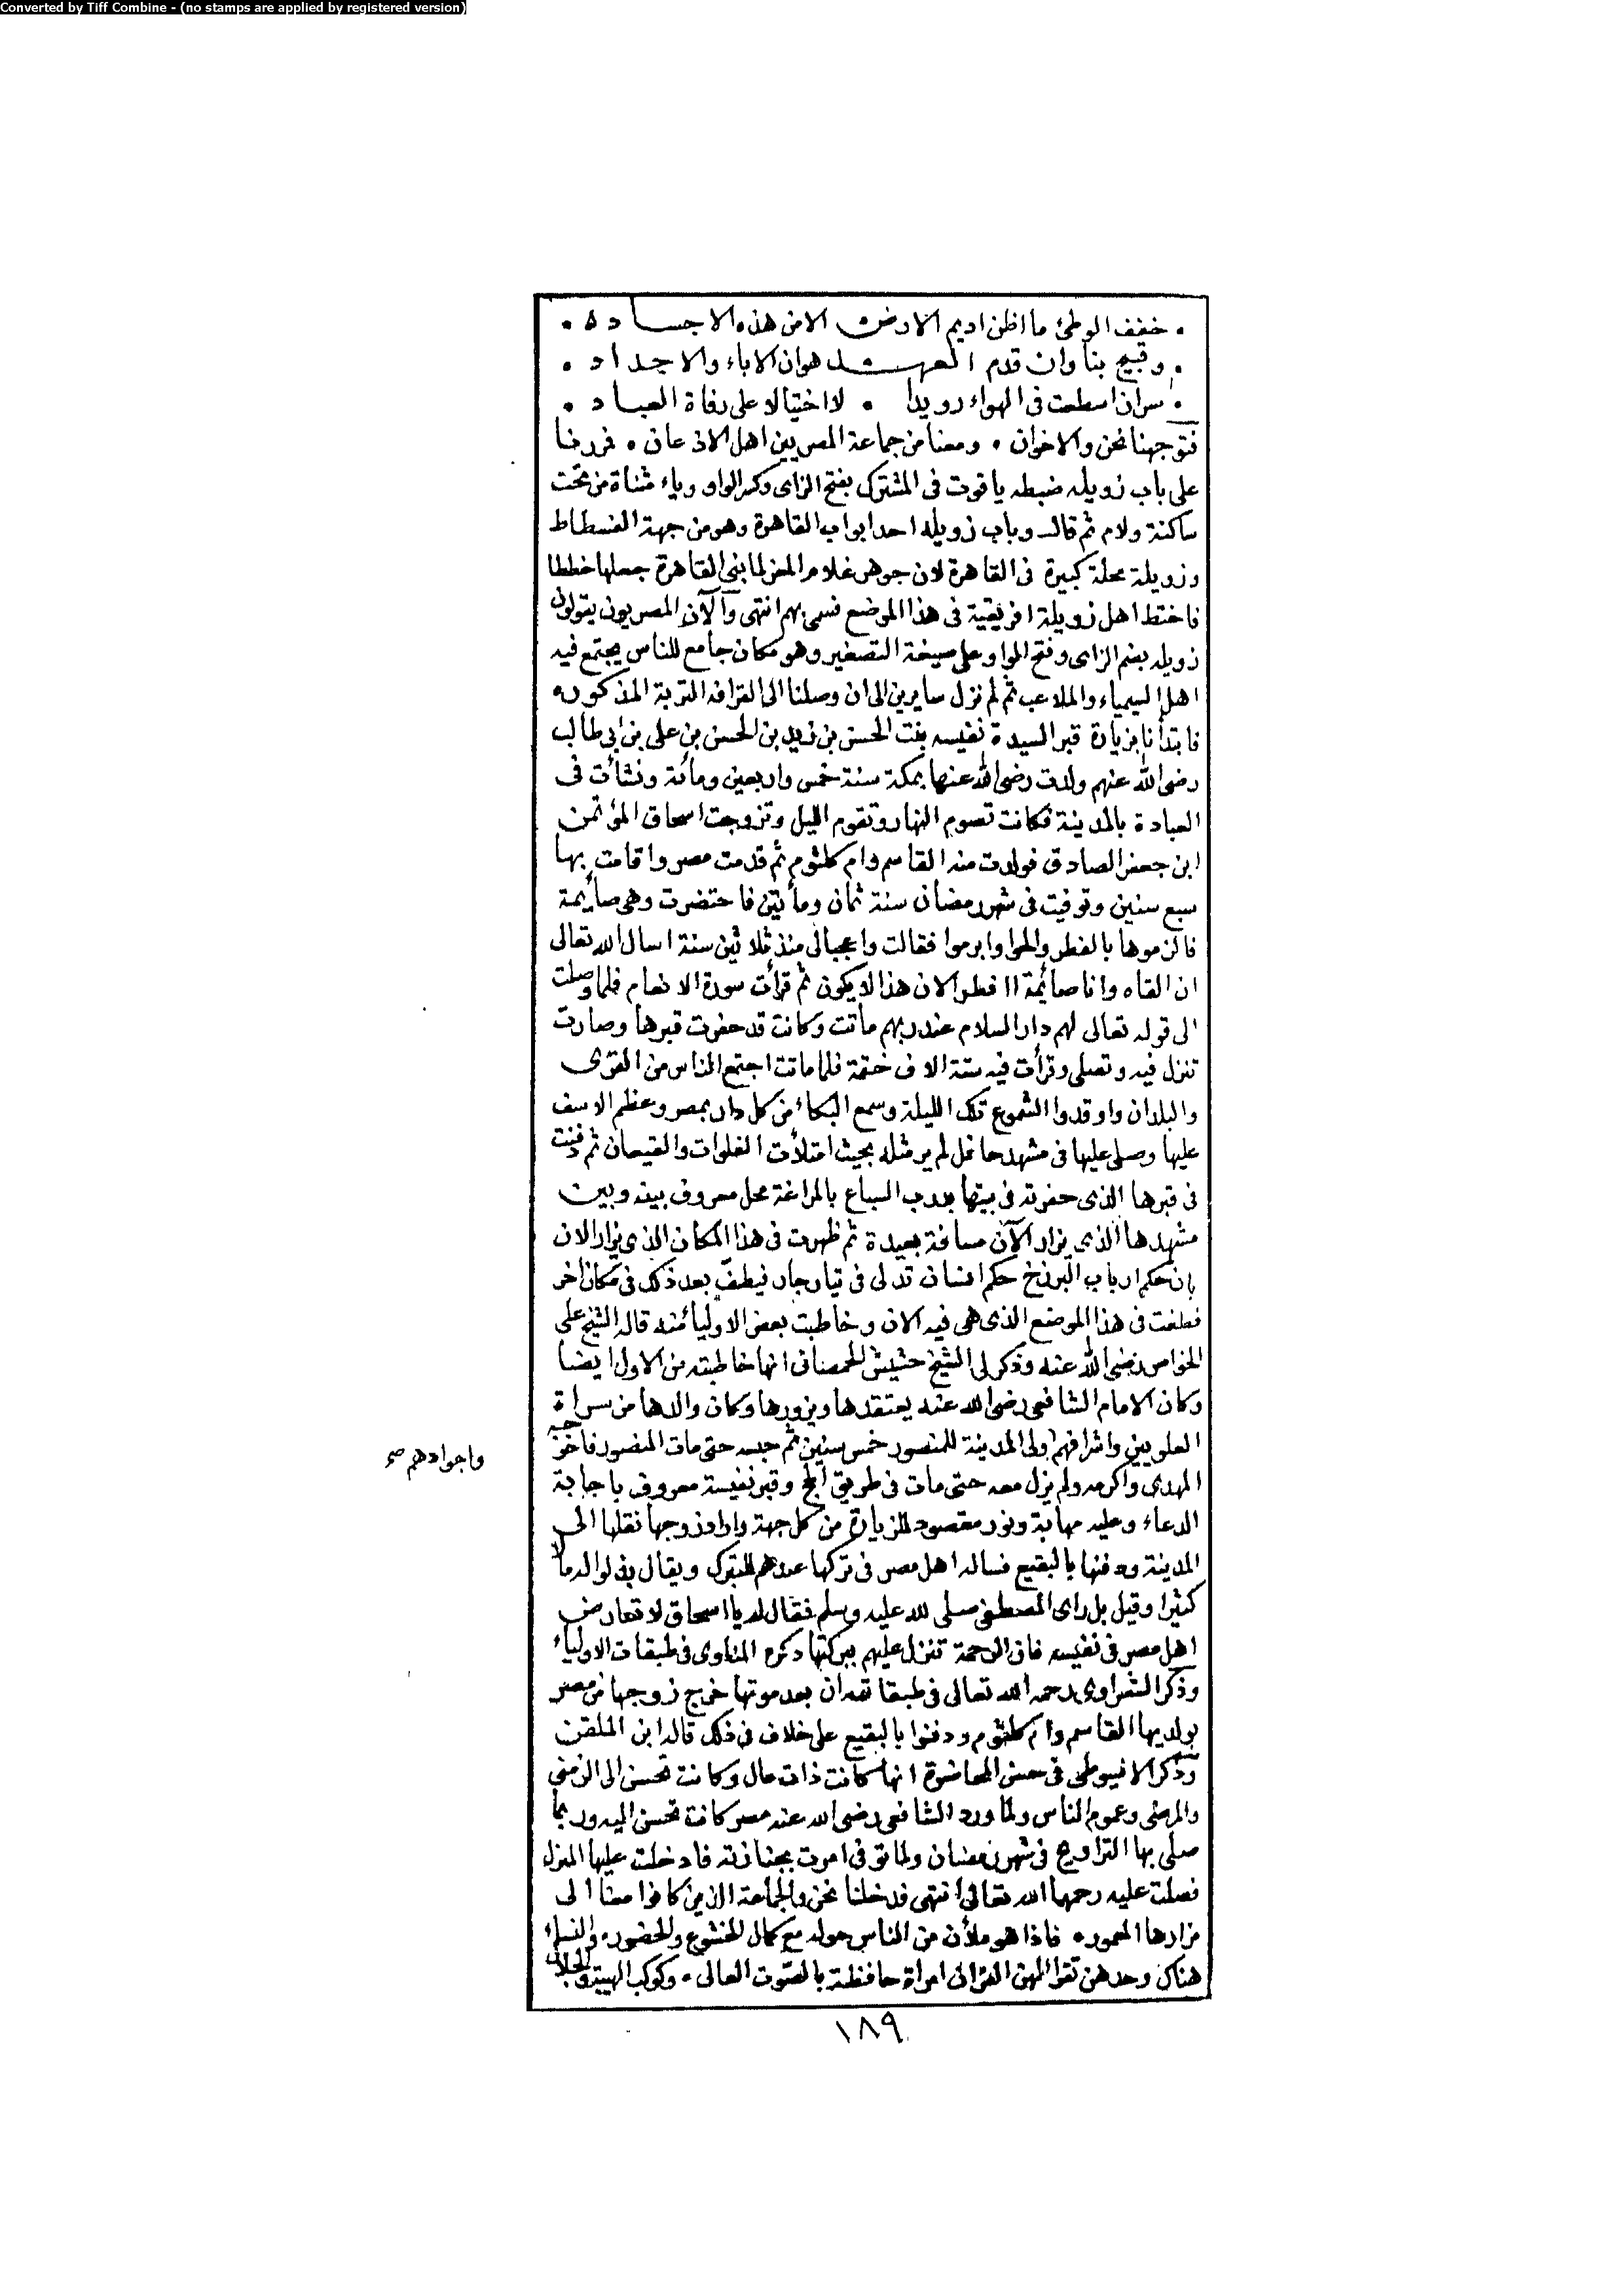 Converted by Tiff Combine - (no stamps are applied by registered version)
. خفف الوطئ ما اظن اديم الارض الا من هذه الاجساده .
. وقبيح بنا وان قدم العهد هوان الاباء والاجداد .
. سر ان اسطعت في الهواء رويدا . لا اختيالا على رفاة العباد .
فتوجهنا نحن والاخوان . ومعنا من جماعة المصريين اهل الاذعان . فمررنا
على باب زويله ضبطه ياقوت في المشترك بفتح الزاى وكسر الواو وياء مثناة من تحت
ساكنة ولام ثم قال وباب زويله احد ابواب القاهرة وهو من جهة الفسطاط
وزويلة محلة كبيرة في القاهرة لان جوهر غلام المعز لما بنى القاهرة جعلها خططا
فاختط اهل زويلة افريقية في هذا الموضع فسمى بهم انتهى والآن المصريون يقولون
زويله بضم الزاى وفتح الواو على صيغة التصغير وهو مكان جامع للناس يجتمع فيه
اهل السيمياء والملاعب ثم لم نزل سايرين الى ان وصلنا الى القرافه التربة المذكوره
فابتدأنا بزيارة قبر السيدة نفيسه بنت الحسن بن زيد بن الحسن بن على بن ابى طالب
رضى الله عنهم ولدت رضى الله عنها بمكة سنة خمس واربعين ومائة ونشأت في
العبادة بالمدينة فكانت تصوم النهار وتقوم الليل وتزوجت اسحاق المؤتمن
ابن جعفر الصادق فولدت منه القاسم وام كلثوم ثم قدمت مصر واقامت بها
سبع سنين وتوفيت في شهر رمضان سنة ثمان ومأتين فاحتضرت وهى صايمة
فالزموها بالفطر والحوا وابرموا فقالت واعجبالى منذ ثلاثين سنة اسال الله تعالى
ان القاه وانا صائمة اافطر الان هذا لا يكون ثم قرأت سورة الانعام فلما وصلت
الى قوله تعالى لهم دار السلام عند ربهم ماتت وكانت قد حفرت قبرها وصارت
تنزل فيه وتصلى وقرأت فيه ستة الاف ختمة فلما ماتت اجتمع الناس من القرى
والبلدان واوقدوا الشموع تلك الليلة وسمع البكاء من كل دار بمصر وعظم الاسف
عليها وصلى عليها في مشهد حافل لم ير مثله بحيث امتلأت الفلوات والقيعان ثم دفنت
في قبرها الذى حفرته في بيتها بدرب السباع بالمراغة محل معروف بينه وبين
مشهدها الذى يزار الآن مسافة بعيدة ثم ظهرت في هذا المكان الذى يزار الان
بان حكم ارباب البرزخ حكم انسان تدلى في تيار جار فيطف بعد ذلك في مكان اخر
فطفت في هذا الموضع الذى هى فيه الان وخاطبت بعض الاولياء منه قاله الشيخ على
الخواص رضى الله عنه وذكر لى الشيخ حشيش الحمصانى انها خاطبته من الاول ايضا
وكان الامام الشافعى رضى الله عنه يعتقدها ويزورها وكان والدها من سراة
العلويين واشرافهم ولى المدينة للمنصور خمس سنين ثم حبسه حتى مات المنصور فاخرجه
واجوادهم صح
المهدى واكرمه ولم يزل معه حتى مات في طريق الحج وقبر نفيسة معروف باجابة
الدعاء وعليه مهابة ونور مقصود للزيارة من كل جهة واراد زوجها نقلها الى
المدينة ودفنها بالبقيع فساله اهل مصر في تركها عندهم للتبرك ويقال بذلوا له مالا
كثيرا وقيل بل راى المصطفى صلى الله عليه وسلم فقال له يا اسحاق لا تعارض
اهل مصر في نفيسه فان الرحمة تنزل عليهم ببركتها ذكره المناوى في طبقات الاولياء
وذكر الشعراوى رحمه الله تعالى في طبقاته ان بعد موتها خرج زوجها من مصر
بولديها القاسم وام كلثوم ودفنوا بالبقيع على خلاف في ذلك قاله ابن الملقن
وذكر الاسيوطى في حسن المحاضرة انها كانت ذات مال وكانت تحسن الى الزمنى
والمرضى وعموم الناس ولما ورد الشافعى رضى الله عنه مصر كانت تحسن اليه وربما
صلى بها التراويح في شهر رمضان ولما توفى امرت بجنازته فادخلت عليها المنزل
فصلت عليه رحمها الله تعالى انتهى فدخلنا نحن والجماعة الذين كانوا معنا الى
مزارها المعموره فاذا هو ملأن من الناس حوله مع كمال الخشوع والحضور . والنساء
هناك وحدهن تقرأ لهن القرآن امراة حافظة بالصوت العالى . وكوكب الهيبة والجلال
١٨٩